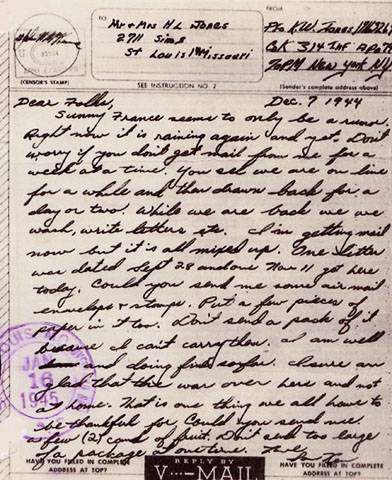 TO:
FROM
Mr + Mrs H L Jones
2711 Sims
St Louis Missouri
Pfc K.W. Jones
Co K 314 Inf APO 79
PM New York N.Y.
(CENSOR'S STAMP)
SEE INSTRUCTION NO. 2
(Sender's complete address above)
Dear Folks,
Dec. 7 1944
Sunny France seems to only be a rumor.
Right now it is raining again and yet. Don't
worry if you don't get mail from me for a
week at a time. You see we are on line
for a while and then drawn back for a
day or two. While we are back we
wash, write letters etc. I'm getting mail
now but it is all mixed up. One letter
was dated Sept 28 and one Nov 11 got here
today. Could you send me some air mail
envelopes + stamps. Put a few pieces of
paper in it too. Don't send a pack of it
because I can't carry them. I am well
and doing fine so far. I sure am
glad that this war over here and not
at home. That is one thing we all have to
be thankful for. Could you send me
a few (2) cans of fruit. Don't send too large
of a package at one time.
JAN
16
1945
HAVE YOU FILLED IN COMPLETE
ADDRESS AT TOP?
REPLY BY
V···—MAIL
HAVE YOU FILLED IN COMPLETE
ADDRESS AT TOP?